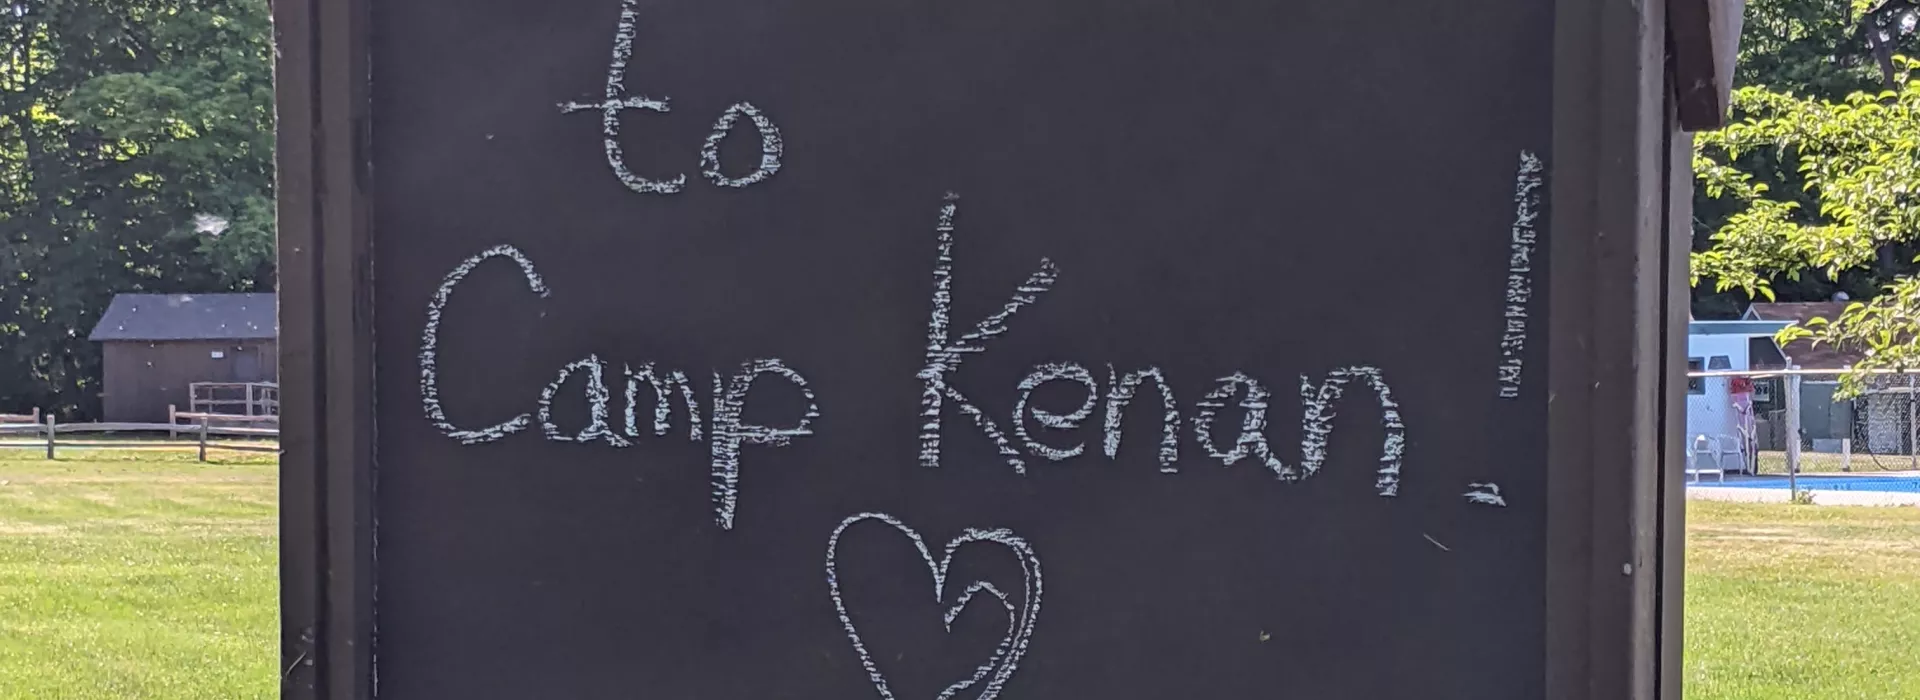 to
Camp Kenan!